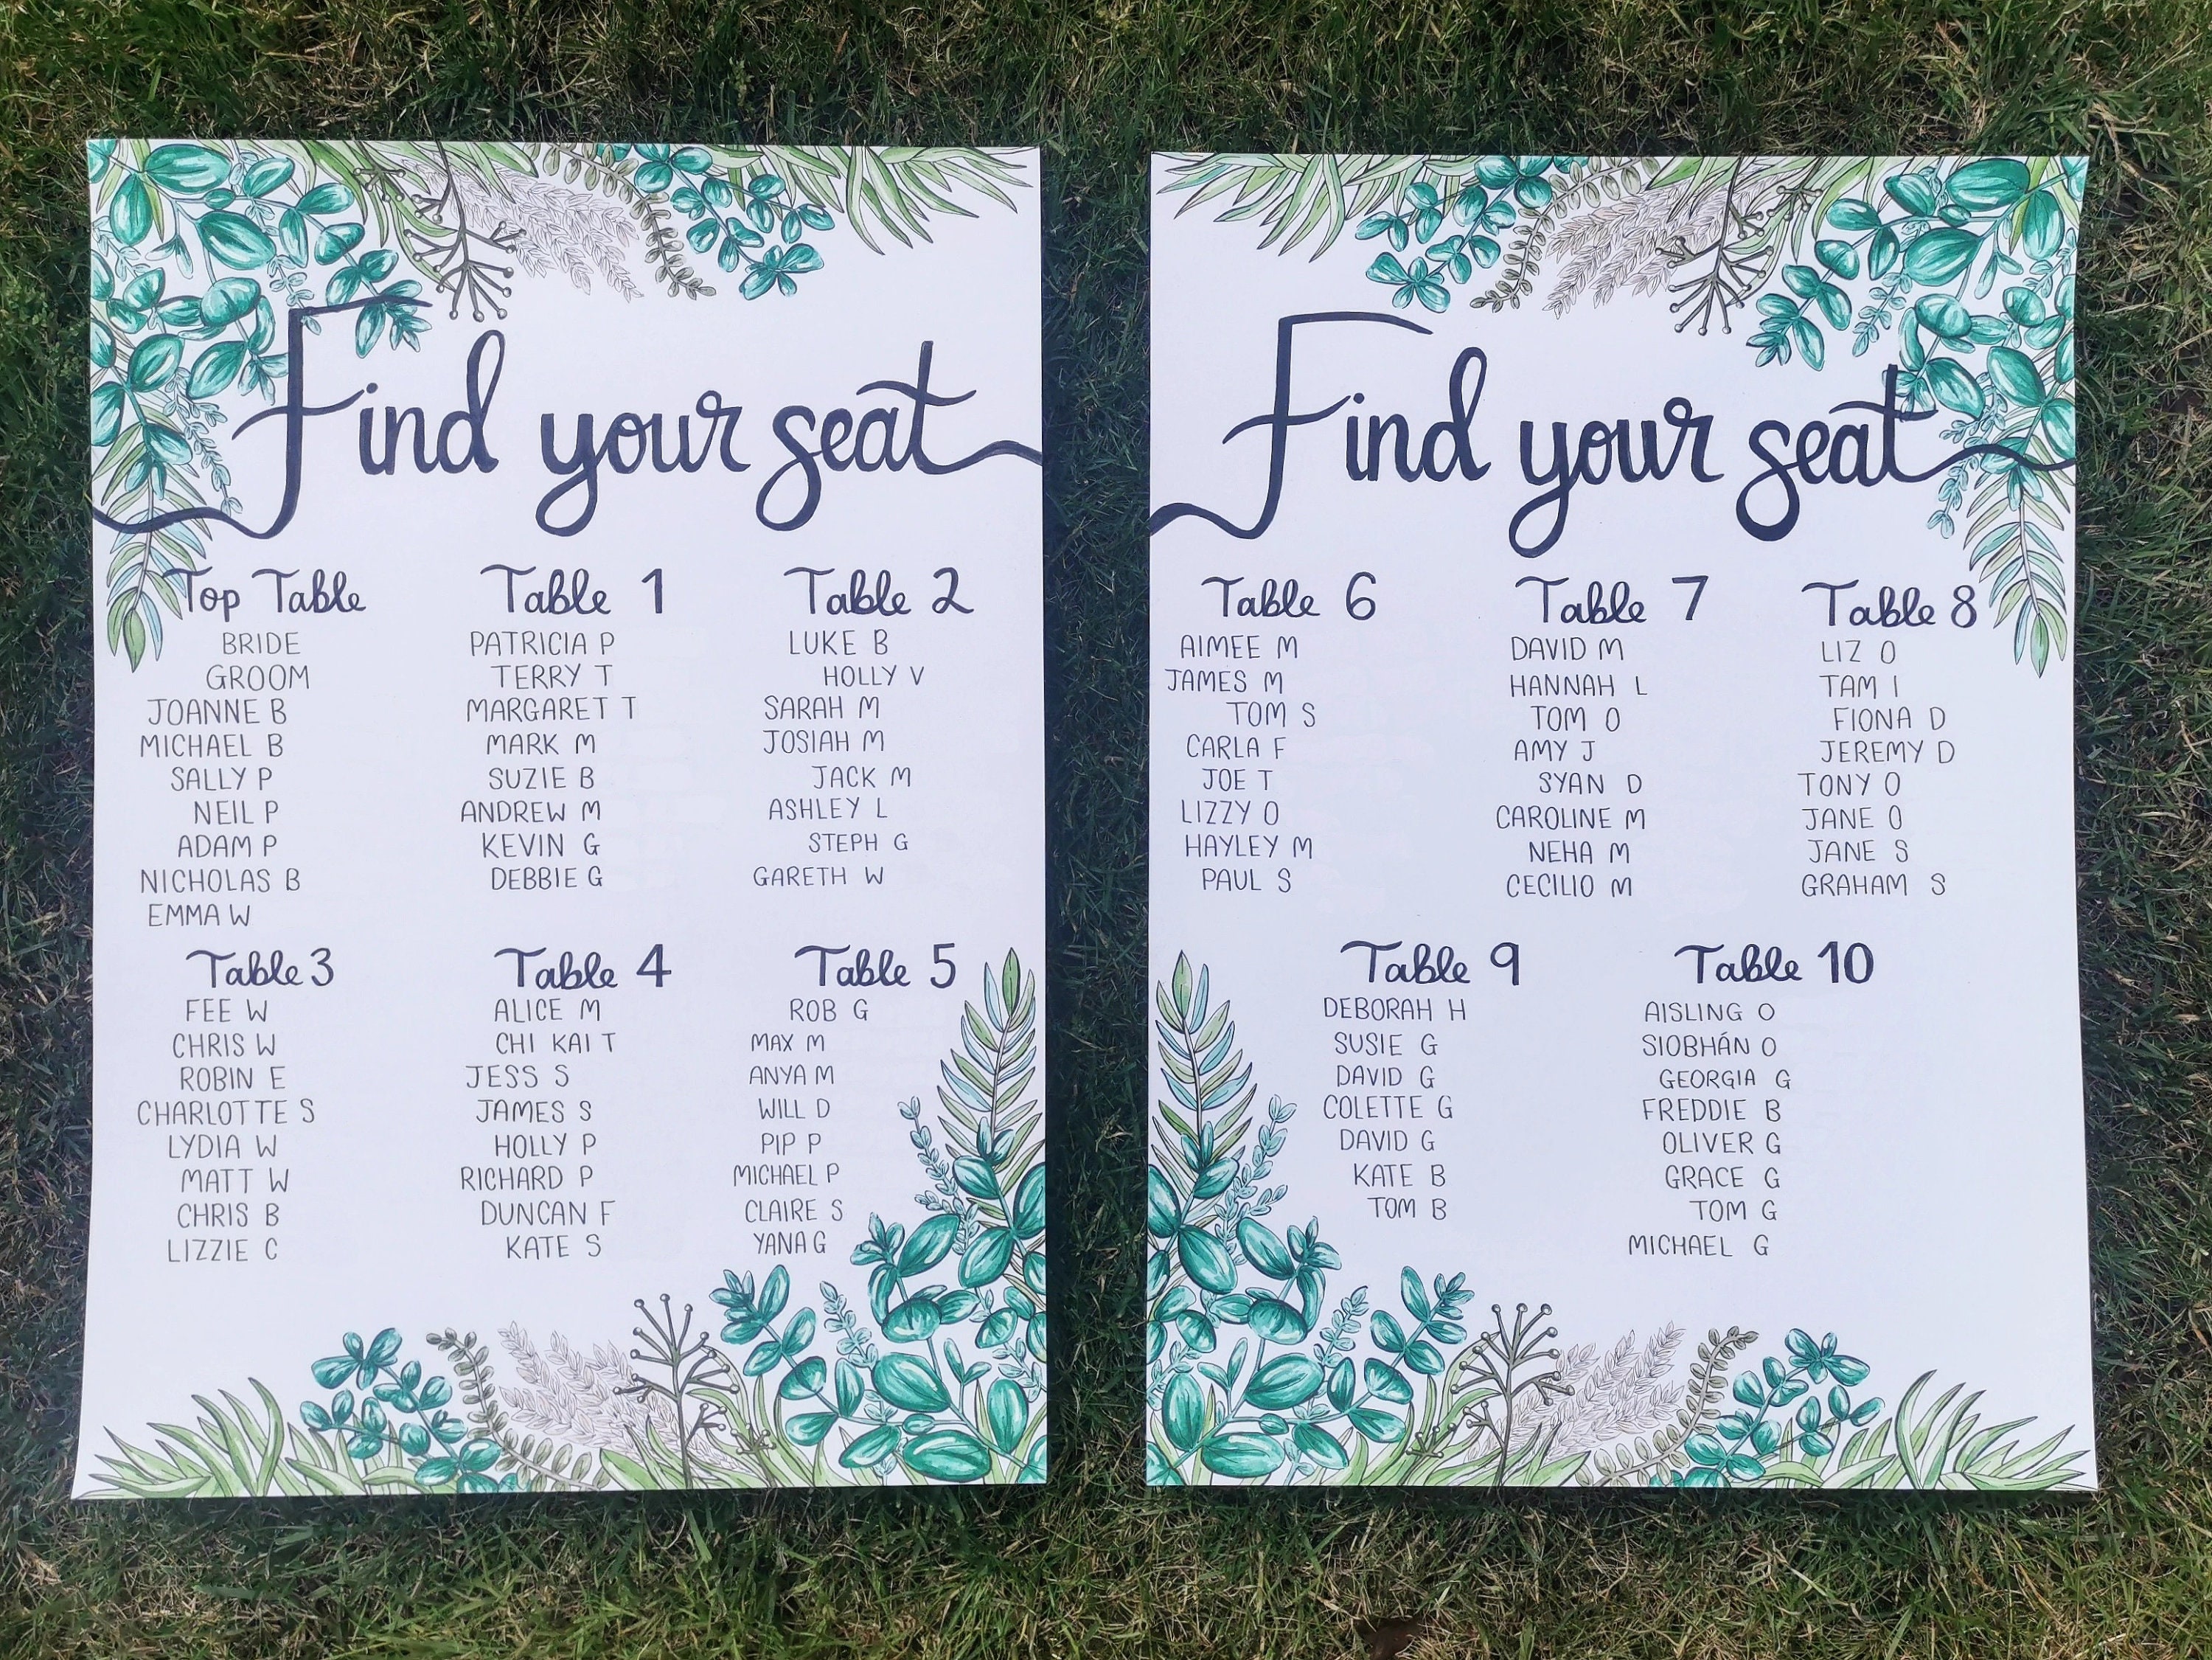 Find your seat
Top Table
BRIDE
GROOM
JOANNE B
MICHAEL B
SALLY P
NEIL P
ADAM P
NICHOLAS B
EMMA W
Table 1
PATRICIA P
TERRY T
MARGARET T
MARK M
SUZIE B
ANDREW M
KEVIN G
DEBBIE G
Table 2
LUKE B
HOLLY V
SARAH M
JOSIAH M
JACK M
ASHLEY L
STEPH G
GARETH W
Table 3
FEE W
CHRIS W
ROBIN E
CHARLOTTE S
LYDIA W
MATT W
CHRIS B
LIZZIE C
Table 4
ALICE M
CHI KAI T
JESS S
JAMES S
HOLLY P
RICHARD P
DUNCAN F
KATE S
Table 5
ROB G
MAX M
ANYA M
WILL D
PIP P
MICHAEL P
CLAIRE S
YANA G
Find your seat
Table 6
AIMEE M
JAMES M
TOM S
CARLA F
JOE T
LIZZY O
HAYLEY M
PAUL S
Table 7
DAVID M
HANNAH L
TOM O
AMY J
SYAN D
CAROLINE M
NEHA M
CECILIO M
Table 8
LIZ O
TAM I
FIONA D
JEREMY D
TONY O
JANE O
JANE S
GRAHAM S
Table 9
DEBORAH H
SUSIE G
DAVID G
COLETTE G
DAVID G
KATE B
TOM B
Table 10
AISLING O
SIOBHÁN O
GEORGIA G
FREDDIE B
OLIVER G
GRACE G
TOM G
MICHAEL G